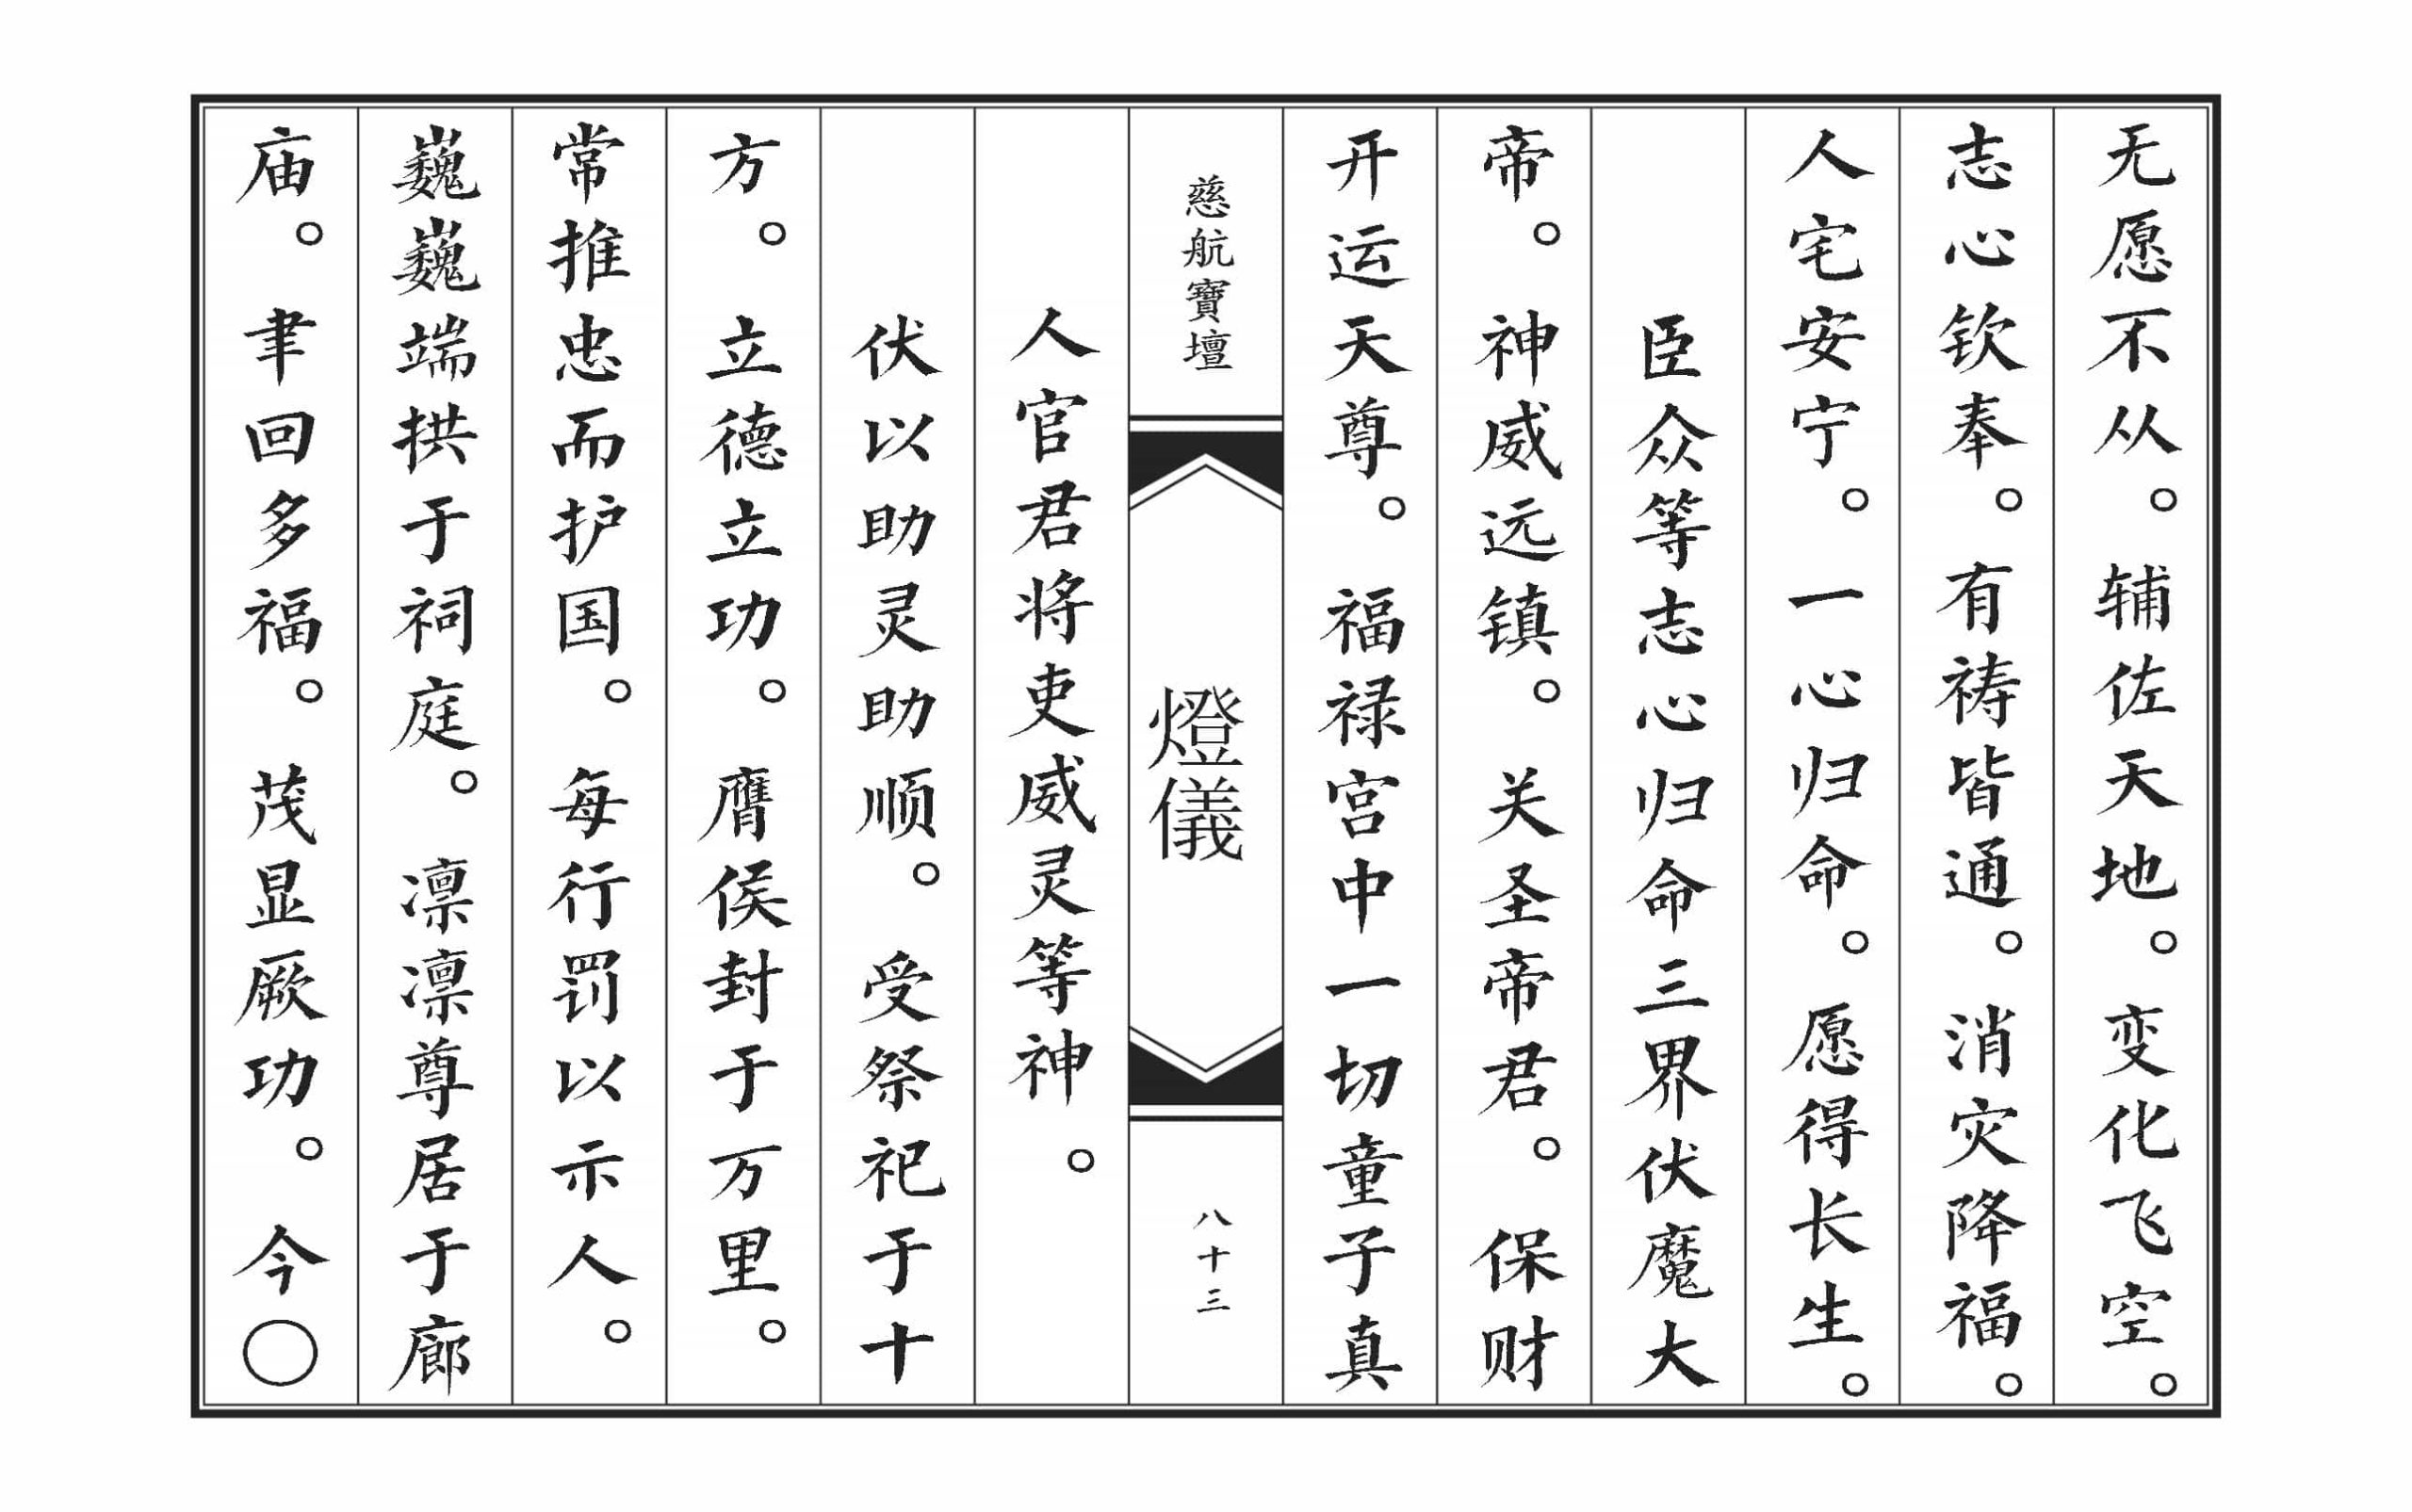 无愿不从。辅佐天地。变化飞空。
志心钦奉。有祷皆通。消灾降福。
人宅安宁。一心归命。愿得长生。
臣众等志心归命三界伏魔大
帝。神威远镇。关圣帝君。保财
开运天尊。福禄宫中一切童子真
慈航寶壇
燈儀
八十三
人官君将吏威灵等神。
伏以助灵助顺。受祭祀于十
方。立德立功。膺侯封于万里。
常推忠而护国。每行罚以示人。
巍巍端拱于祠庭。凛凛尊居于廊
庙。聿回多福。茂显厥功。今〇